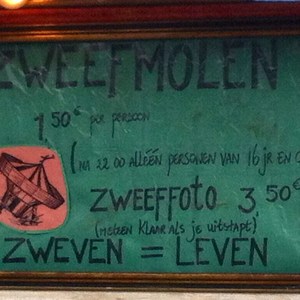 ZWEEFMOLEN
1,50€ per persoon
(NA 22 00 ALLÉÉN PERSONEN VAN 16 JR EN
ZWEEFFOTO 3 50€
(METEEN KLAAR ALS JE UITSTAPT)
ZWEVEN = LEVEN